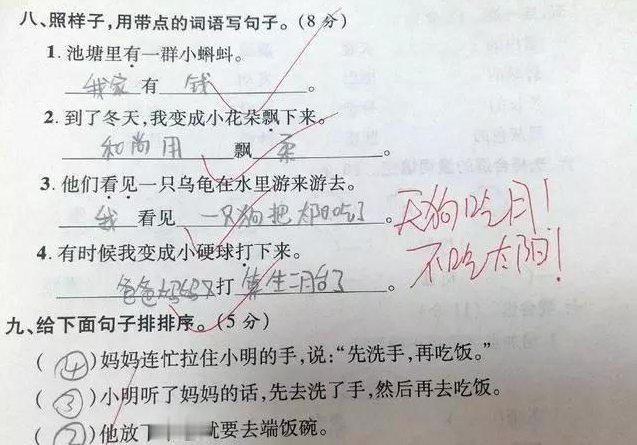 八、照样子,用带点的词语写句子。(8分)
1. 池塘里有一群小蝌蚪。
我家 有 钱 。
2. 到了冬天,我变成小花朵飘下来。
和尚用 飘柔 。
3. 他们看见一只乌龟在水里游来游去。
我 看见 一只狗把太阳吃了 。
天狗吃月!
不吃太阳!
4. 有时候我变成小硬球打下来。
爸爸妈妈又打算生二胎了 。
九、给下面句子排排序。(5分)
(④)妈妈连忙拉住小明的手,说:“先洗手,再吃饭。”
(③)小明听了妈妈的话,先去洗了手,然后再去吃饭。
(②)他放下 就要去端饭碗。